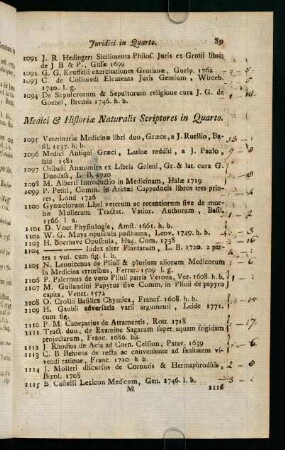 Juridici in Quarto. 89
1091 J. R. Hedinger Sicilimenta Philos. Juris ex Grotii libris
de J B & P, Gissæ 1699
1092 G. G. Keuffelii exercitationes Grotianæ, Guelp. 1762
1093 C. de Collivardi Elementa Juris Gentium, Wirceb.
1740. l. g.
1094 De Sepulcrorum & Sepultorum religione cura J. G. de
Goebel, Bremis 1746. h. b.
Medici & Historiæ Naturalis Scriptores in Quarto.
1095 Veterinariæ Medicinæ libri duo, Græce, a J. Ruellio, Ba-
sil. 1537. h. b.
1096 Medici Antiqui Græci, Latine redditi, a J. Paulo
ibid 1581
1097 Oribasii Anatomica ex Libris Galeni, Gr. & lat. cura G.
Dundass, L. B. 1720
1098 M. Alberti Introductio in Medicinam, Halæ 1719
1099 P. Petiti, Comm. in Aretæi Cappadocis libros tres prio-
res, Lond 1726
1100 Gynæciorum Liber veterum ac recentiorum sive de mor-
bis Mulierum Tractat. Varior. Authorum, Basil,
1566. l. a.
1101 D. Voet Physiologia, Amst. 1661. h. b.
1102 W. G. Mays opuscula posthuma, Leov. 1749. h. b.
1103 H. Boerhave Opuscula, Hag. Com. 1738
1104 Index alter Plantarum, L. B. 1720. 2 par-
tes 1 vol. cum fig. h. b.
1105 N. Leonicenus de Plinii & plurium aliorum Medicorum
in Medicina erroribus, Ferrar. 1509 l. g.
1106 P. Palermus de vero Plinii patria Verona, Ver. 1608 h. b.
1107 M. Guilandini Papyrus sive Comm. in Plinii de papyro
capita, Venet. 1572
1108 O. Crollii Basilica Chymica, Francf. 1608. h. b.
1109 H. Gaubii adversaria varii argumenti, Leide 1771.
cum fig.
1110 P. M. Caneparius de Atramentis, Rott. 1718
1111 Tract. duo, de Examine Sagarum super aquam frigidam
projectarum, Franc. 1686 bis.
1112 J. Rhodius de Acia ad Corn. Celsum, Patav. 1639
1113 C. B. Behrens de recta ac conveniente ad sanitatem vi-
vendi ratione, Franc 1710. h. b.
1114 J. Molleri discursus de Cornutis & Hermaphroditis,
Berol. 1708
1115 B. Castelli Lexicon Medicum, Gen. 1746. l. b.
M 1116